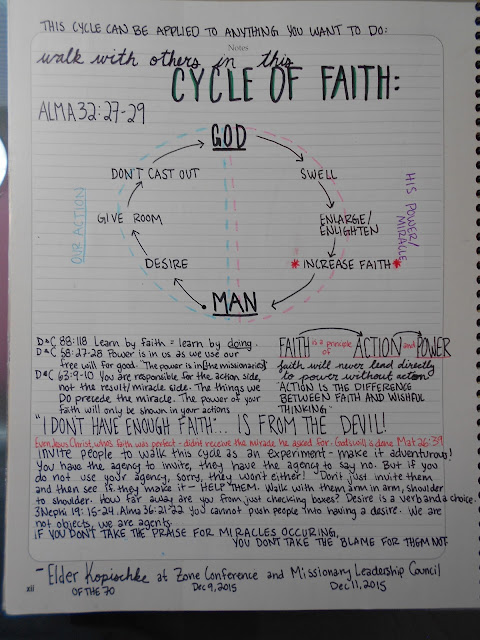 THIS CYCLE CAN BE APPLIED TO ANYTHING YOU WANT TO DO:
Notes
walk with others in this
CYCLE OF FAITH:
ALMA 32:27-29
GOD
DON'T CAST OUT
SWELL
GIVE ROOM
ENLARGE/
ENLIGHTEN
OUR ACTION
HIS POWER/
MIRACLE
DESIRE
* INCREASE FAITH *
MAN
D&C 88:118 Learn by Faith = learn by doing.
D&C 58:27-28 Power is in us as we use our
free will for good. The power is in [the missionaries]
D&C 63:9-10 You are responsible for the action side,
not the result/miracle side. The things we
Do precede the miracle. The power of your
faith will only be shown in your actions
FAITH is a principle of ACTION and POWER
faith will never lend directly
to power without action
"ACTION IS THE DIFFERENCE
BETWEEN FAITH AND WISHFUL
THINKING"
"I DON'T HAVE ENOUGH FAITH"... IS FROM THE DEVIL!
Even Jesus Christ, who's faith was perfect - didnt receive the miracle he asked for. God's will is done Mat 26:39
INVITE people to walk this cycle as an experiment - make it adventurous!
You have the agency to invite, they have the agency to say no. But if you
do not use your agency, sorry, they wont either! Don't just invite them
and then see if they make it - HELP THEM. Walk with them arm in arm, shoulder
to shoulder. How far away are you from just checking boxes? Desire is a verb and a choice.
3 Nephi 19:15-24. Alma 36:21-22 You cannot push people into having a desire. We are
not objects, we are agents.
IF YOU DON'T TAKE THE PRAISE FOR MIRACLES OCCURING,
YOU DON'T TAKE THE BLAME FOR THEM NOT
- Elder Kopischke at Zone Conference and Missionary Leadership Council
OF THE 70
Dec 9, 2015
Dec 11, 2015
xii